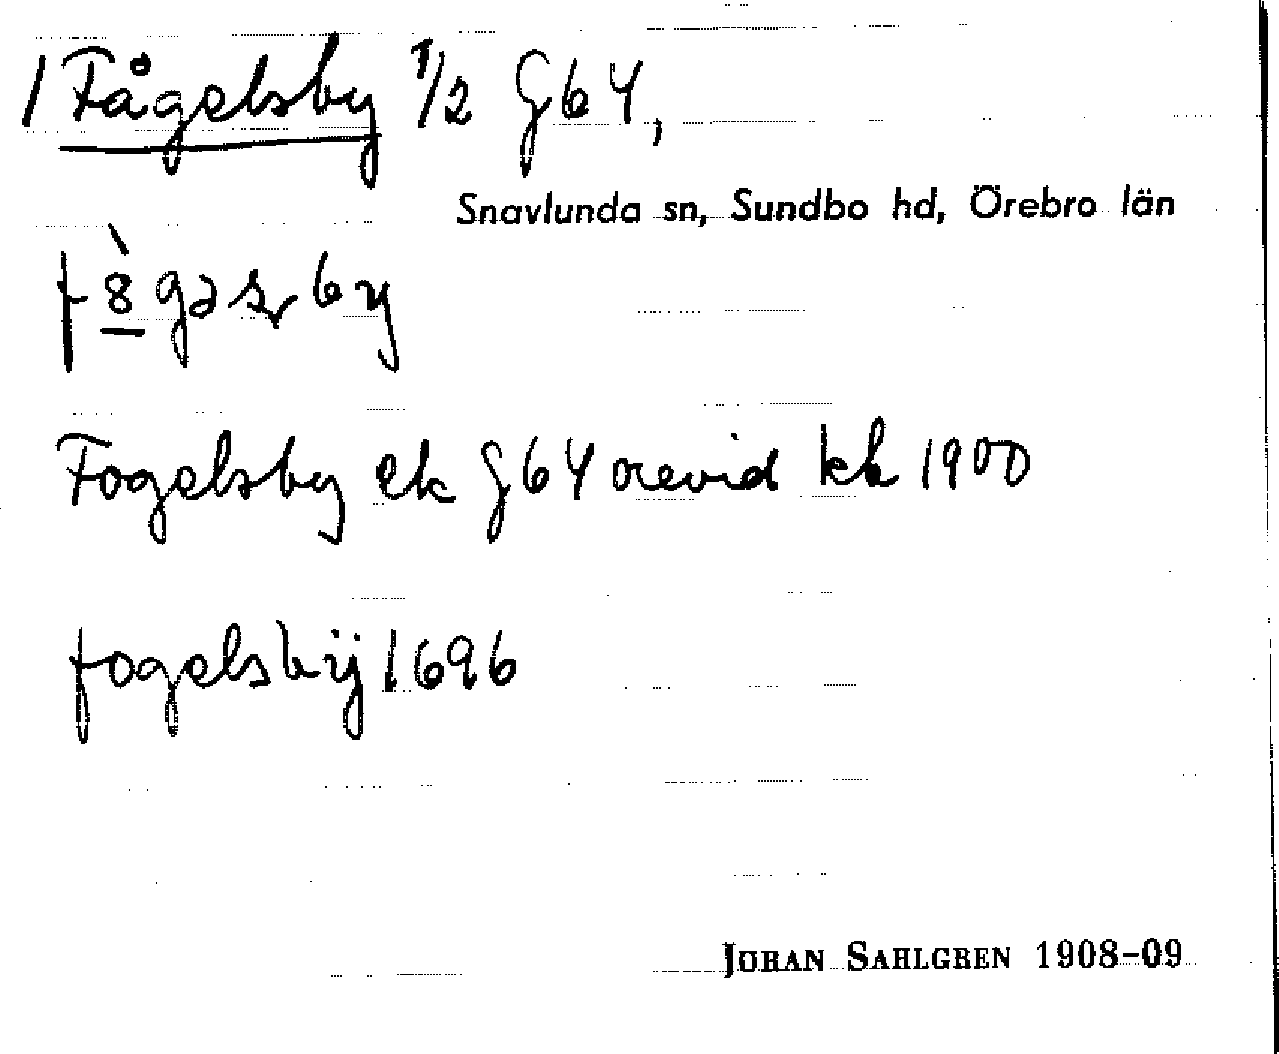 1 Fågelsby 1/2 G64,
Snavlunda sn, Sundbo hd, Örebro län
f8̀gəsby
Fogelsby ek G64 orevid kk 1900
fogelsbÿ 1696
JOHAN SAHLGREN 1908-09